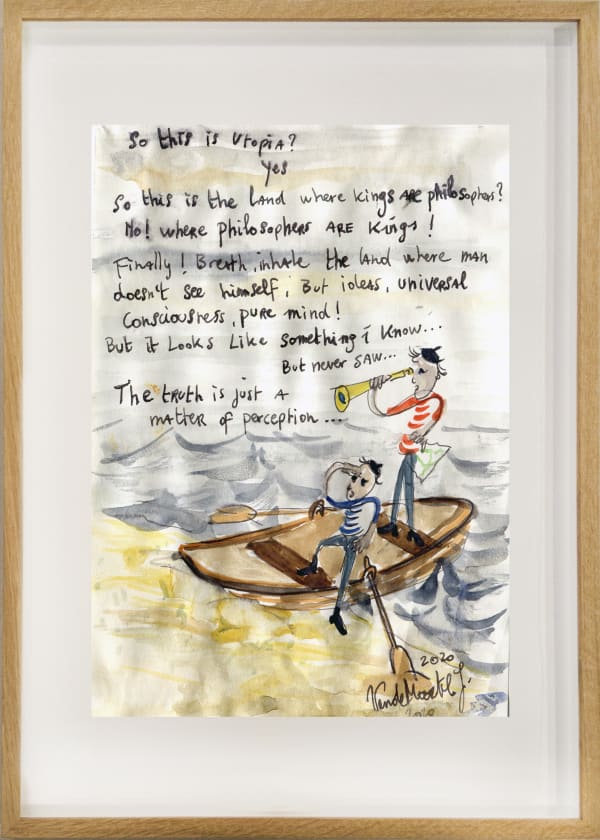 So this is Utopia?
Yes
So this is the Land where kings ARE philosophers?
No! where philosophers ARE Kings!
Finally! Breath, inhale the land where man
doesn't see himself, But ideas, universal
Consciousness, pure mind!
But it Looks Like something i Know...
But never saw...
The truth is just a
matter of perception...
2020
2020